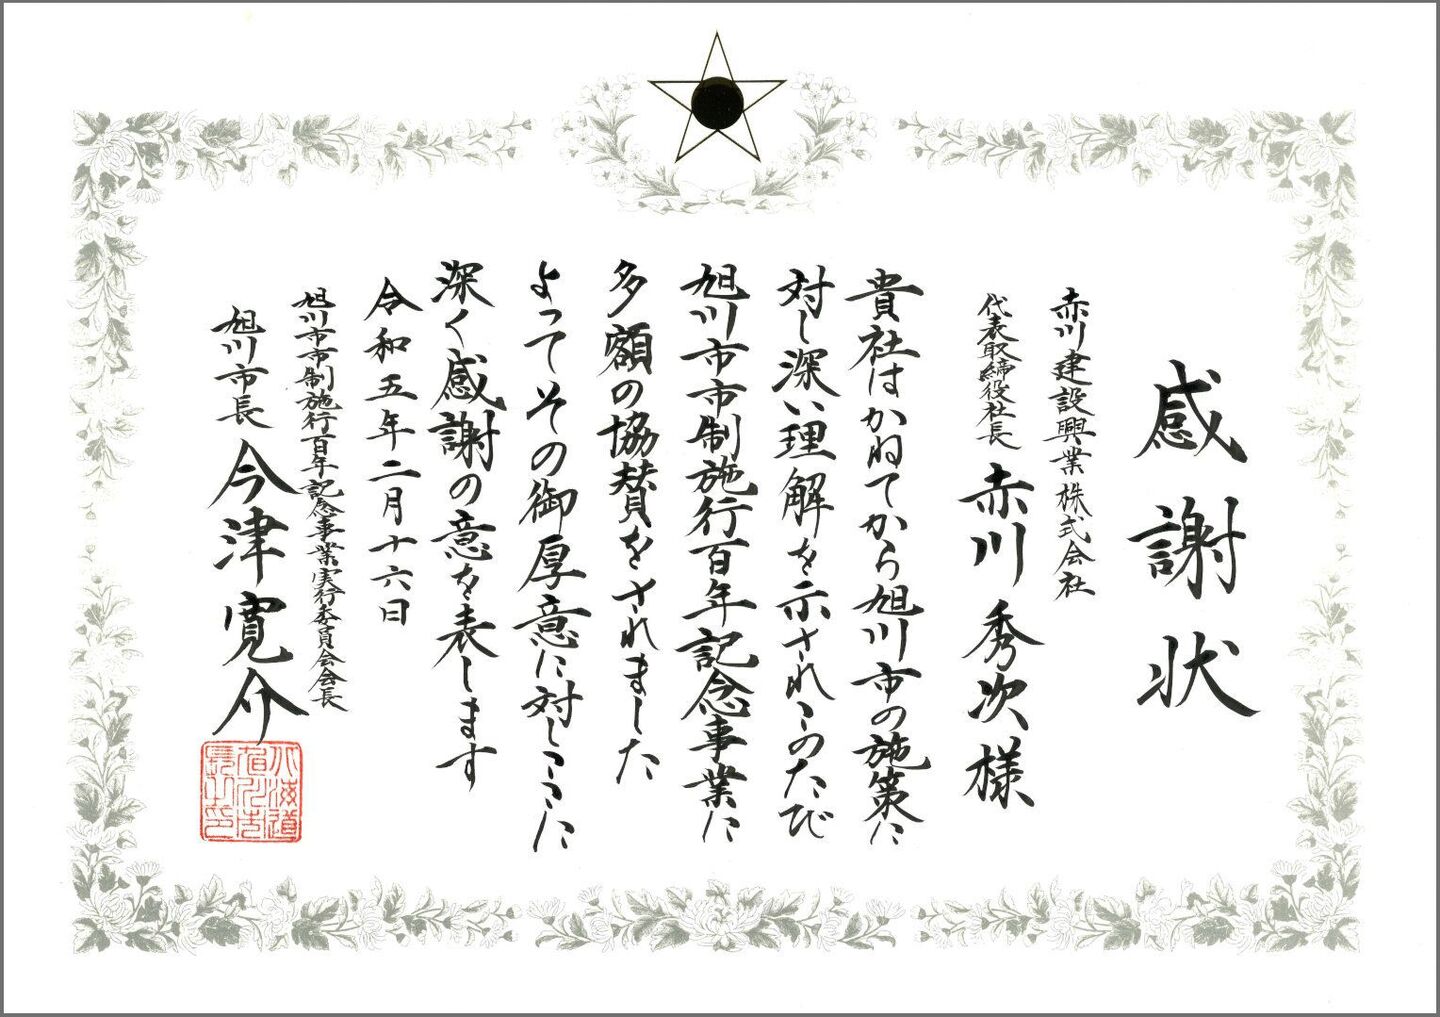 感謝状
赤川建設興業株式会社
代表取締役社長 赤川秀次様
貴社はかねてから旭川市の施策に
対し深い理解を示されこのたび
旭川市市制施行百年記念事業に
多額の協賛をされました
よってその御厚意に対しここに
深く感謝の意を表します
令和五年二月十六日
旭川市市制施行百年記念事業実行委員会会長
旭川市長 今津寛介
北海道
旭川市
長之印